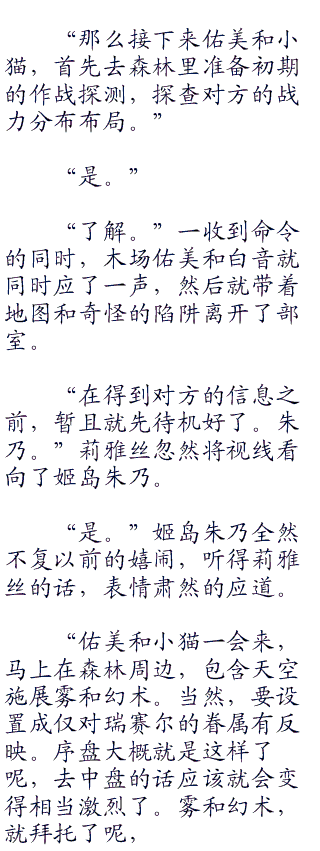 “那么接下来佑美和小
猫，首先去森林里准备初期
的作战探测，探查对方的战
力分布布局。”
“是。”
“了解。”一收到命令
的同时，木场佑美和白音就
同时应了一声，然后就带着
地图和奇怪的陷阱离开了部
室。
“在得到对方的信息之
前，暂且就先待机好了。朱
乃。”莉雅丝忽然将视线看
向了姬岛朱乃。
“是。”姬岛朱乃全然
不复以前的嬉闹，听得莉雅
丝的话，表情肃然的应道。
“佑美和小猫一会来，
马上在森林周边，包含天空
施展雾和幻术。当然，要设
置成仅对瑞赛尔的眷属有反
映。序盘大概就是这样了
呢，去中盘的话应该就会变
得相当激烈了。雾和幻术，
就拜托了呢，